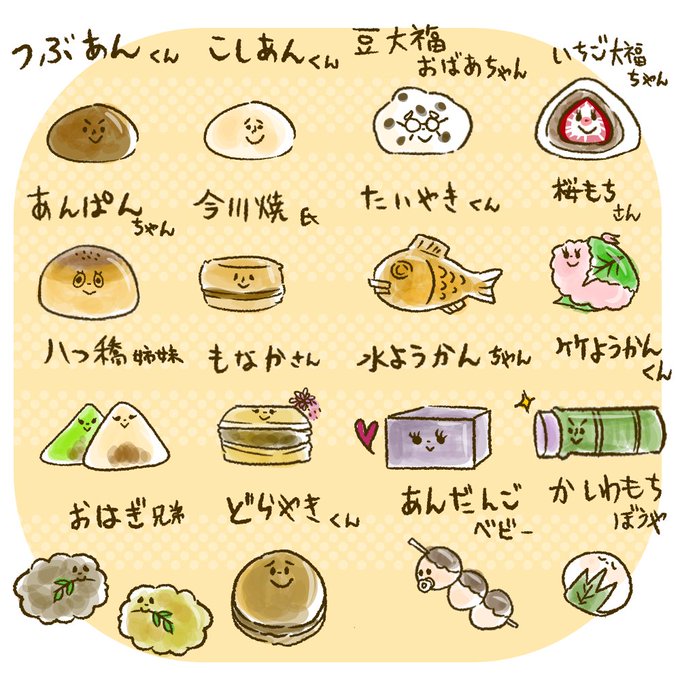 つぶあんくん
こしあんくん
豆大福
おばあちゃん
いちご大福
ちゃん
あんぱん
ちゃん
今川焼 氏
たいやきくん
桜もち
さん
八つ橋姉妹
もなかさん
水ようかんちゃん
竹ようかん
くん
おはぎ兄弟
どらやきくん
あんだんご
ベビー
かしわもち
ぼうや